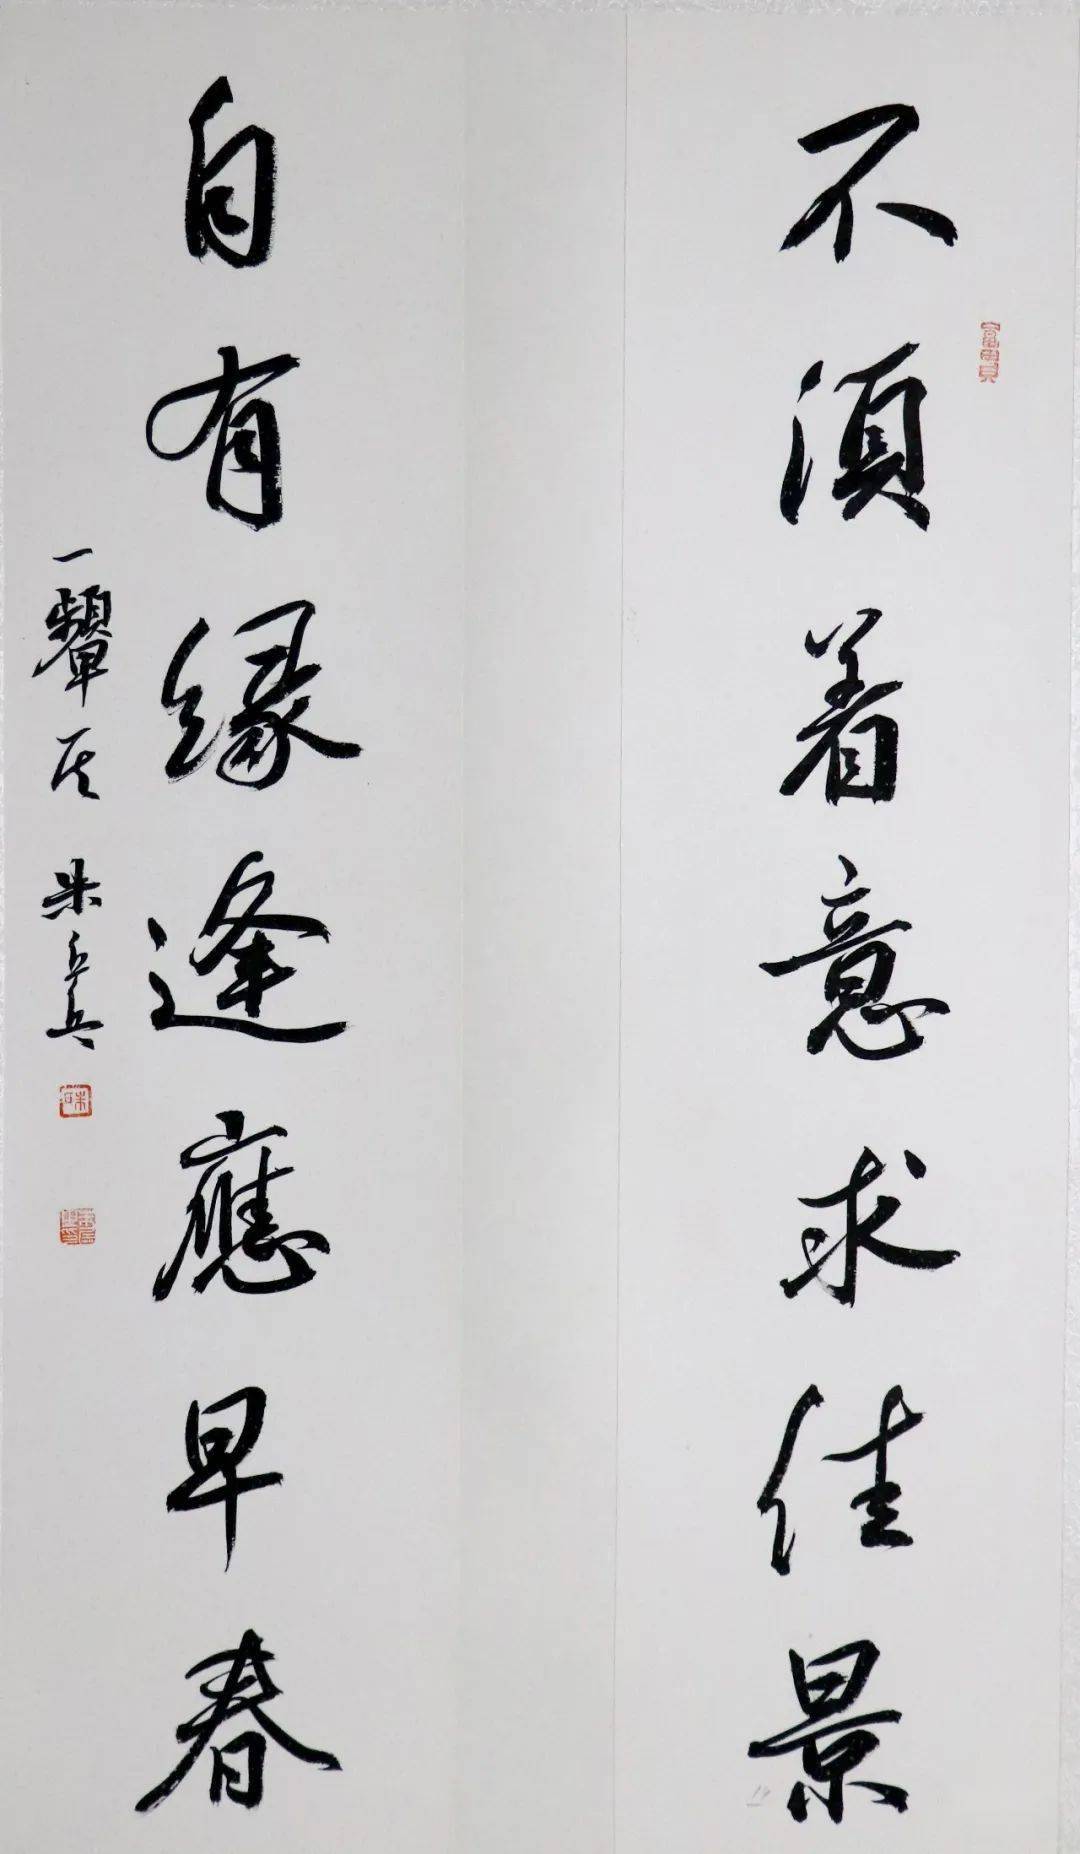 不須着意求佳景
自有緣逢應早春
一顰居 朱兵兵